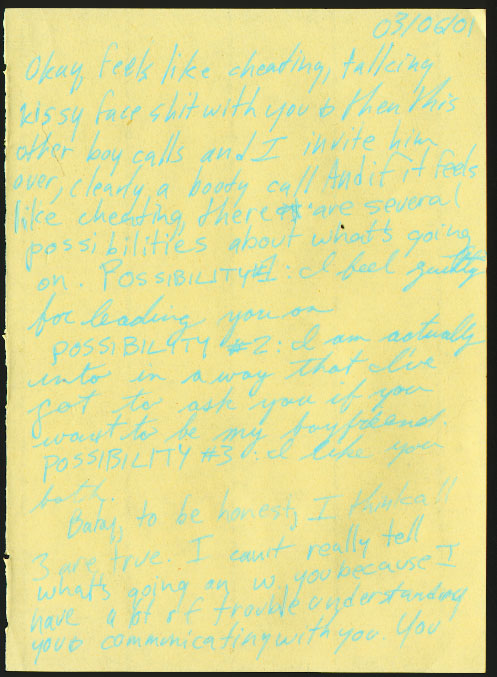 03/06/01
Okay, feels like cheating, talking
kissy face shit with you & then this
other boy calls and I invite him
over, clearly a booty call. And if it feels
like cheating, there are several
possibilities about what's going
on. POSSIBILITY #1: I feel guilty
for leading you on
POSSIBILITY #2: I am actually
into in a way that I've
got to ask you if you
want to be my boyfriend.
POSSIBILITY #3: I like you
both.
Baby, to be honest, I think all
3 are true. I can't really tell
what's going on w/ you because I
have a lot of trouble understanding
you & communicating with you. You